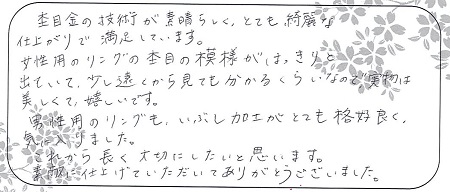 杢目金の技術が素晴らしく、とても綺麗な
仕上がりで満足しています。
女性用のリングの杢目の模様がはっきりと
出ていて、少し遠くから見ても分かるくらいなので実物は
美しくて、嬉しいです。
男性用のリングも、いぶし加工がとても格好良く、
気に入りました。
これから長く大切にしたいと思います。
素敵に仕上げていただいてありがとうございました。